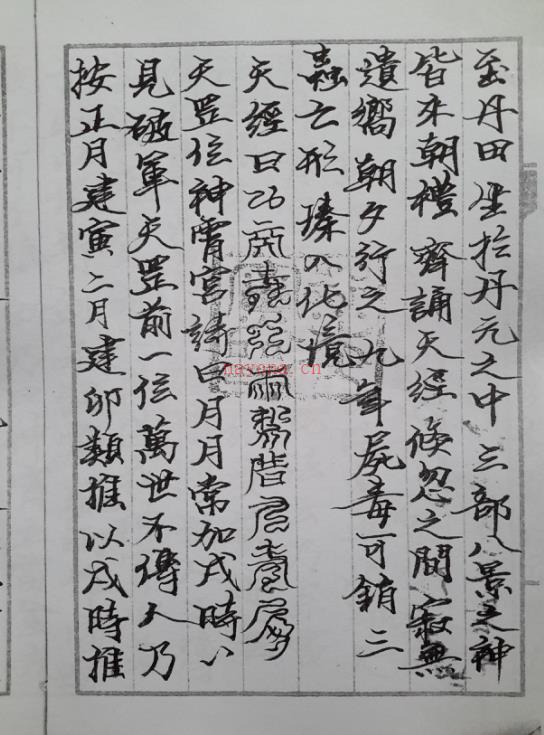 至丹田坐於丹元之中三部八景之神
皆來朝禮齊誦天經倐忽之間寂無
遺嚮朝夕行之九年屍毒可銷三
蟲亡形臻入化境
天經曰
天罡位神霄宮詩曰月月常加戌時
見破軍天罡前一位萬世不傳人乃
按正月建寅二月建卯類推以戌時推
nayona.cn